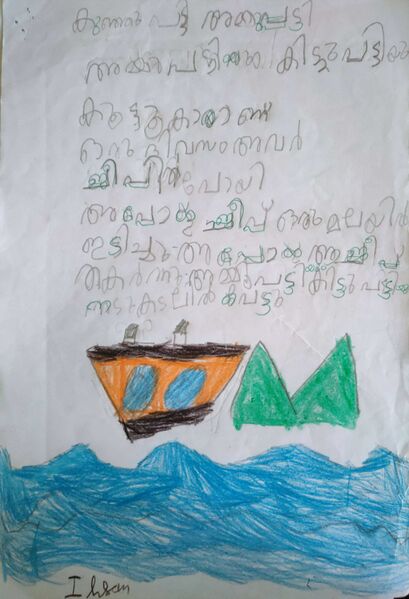 കുഞ്ഞൻ പട്ടി അമ്മുപട്ടി
അമ്മുപട്ടിയും കിട്ടുപട്ടിയും
കൂട്ടുകാരാണ്
ഒരു ദിവസം അവർ
ഷിപ്പിൽ പോയി
അപ്പോൾ ഷിപ്പ് ഒരു മലയിൽ
ഇടിച്ചു അപ്പോൾ ആ ഷിപ്പ്
തകർന്നു അമ്മുപട്ടിയും കിട്ടുപട്ടിയും
കടലിൽ പെട്ടു
Ihsan